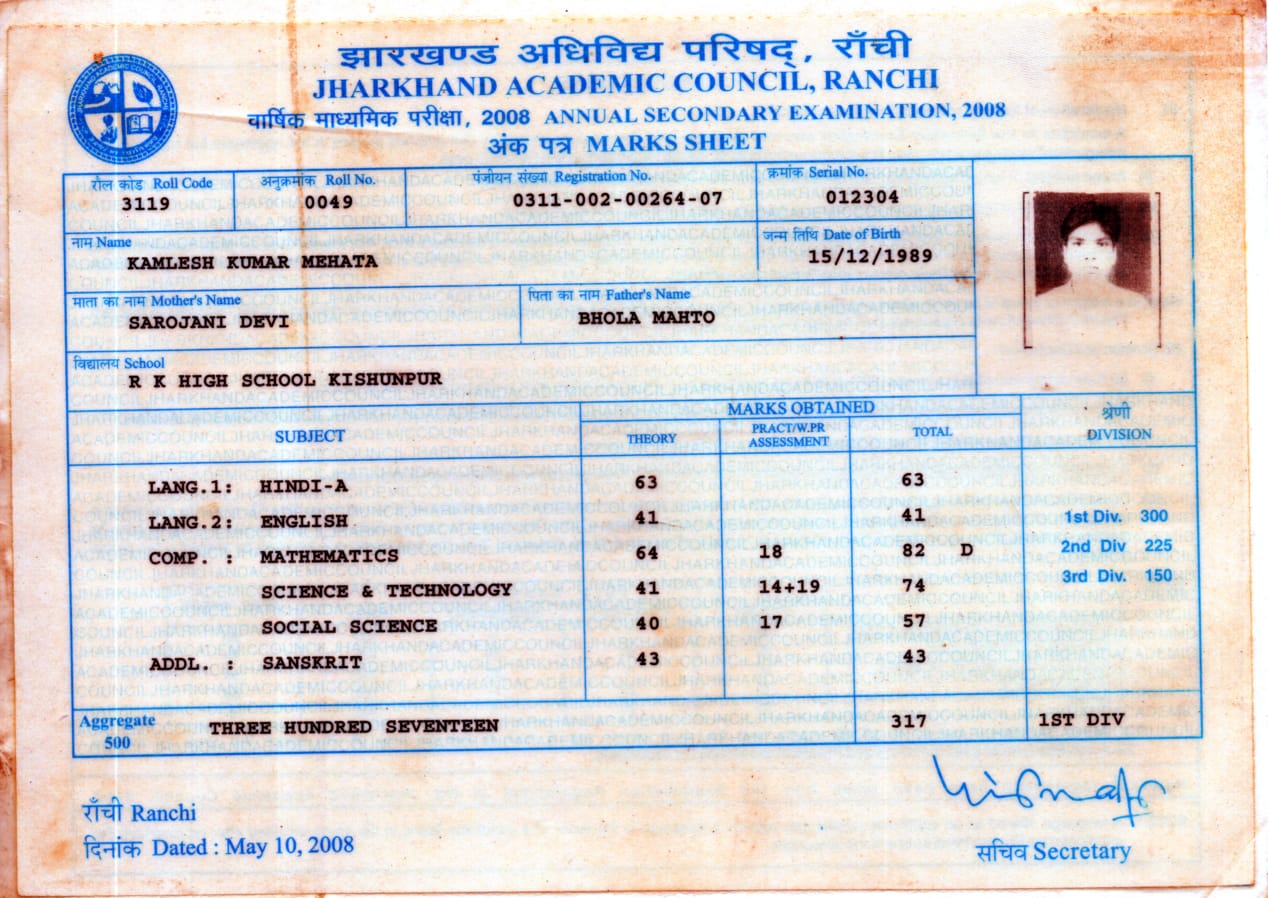 झारखण्ड अधिविद्य परिषद्, राँची
JHARKHAND ACADEMIC COUNCIL, RANCHI
वार्षिक माध्यमिक परीक्षा, 2008 ANNUAL SECONDARY EXAMINATION, 2008
अंक पत्र MARKS SHEET
रौल कोड Roll Code अनुक्रमांक Roll No. पंजीयन संख्या Registration No. क्रमांक Serial No.
3119 0049 0311-002-00264-07 012304
नाम Name जन्म तिथि Date of Birth
KAMLESH KUMAR MEHATA 15/12/1989
माता का नाम Mother's Name पिता का नाम Father's Name
SAROJANI DEVI BHOLA MAHTO
विद्यालय School
R K HIGH SCHOOL KISHUNPUR
MARKS OBTAINED
SUBJECT THEORY PRACT/W.PR ASSESSMENT TOTAL श्रेणी DIVISION
LANG.1: HINDI-A 63 63
LANG.2: ENGLISH 41 41 1st Div. 300
COMP. : MATHEMATICS 64 18 82 D 2nd Div. 225
SCIENCE & TECHNOLOGY 41 14+19 74 3rd Div. 150
SOCIAL SCIENCE 40 17 57
ADDL. : SANSKRIT 43 43
Aggregate 500 THREE HUNDRED SEVENTEEN 317 1ST DIV
राँची Ranchi
दिनांक Dated : May 10, 2008
सचिव Secretary